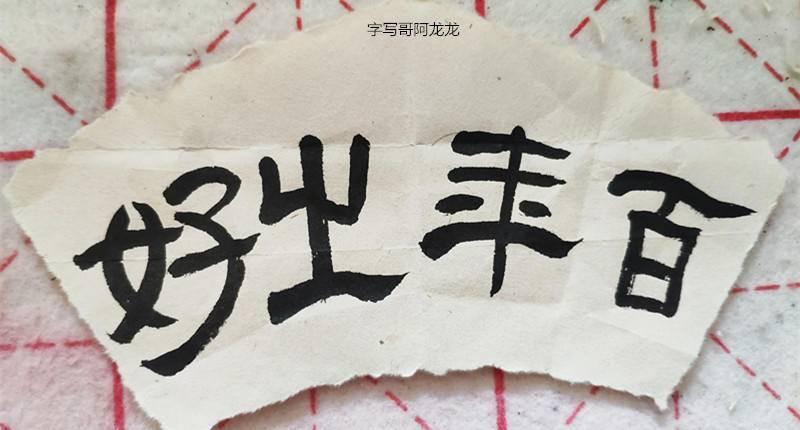 龙龙阿哥写字
百年之好